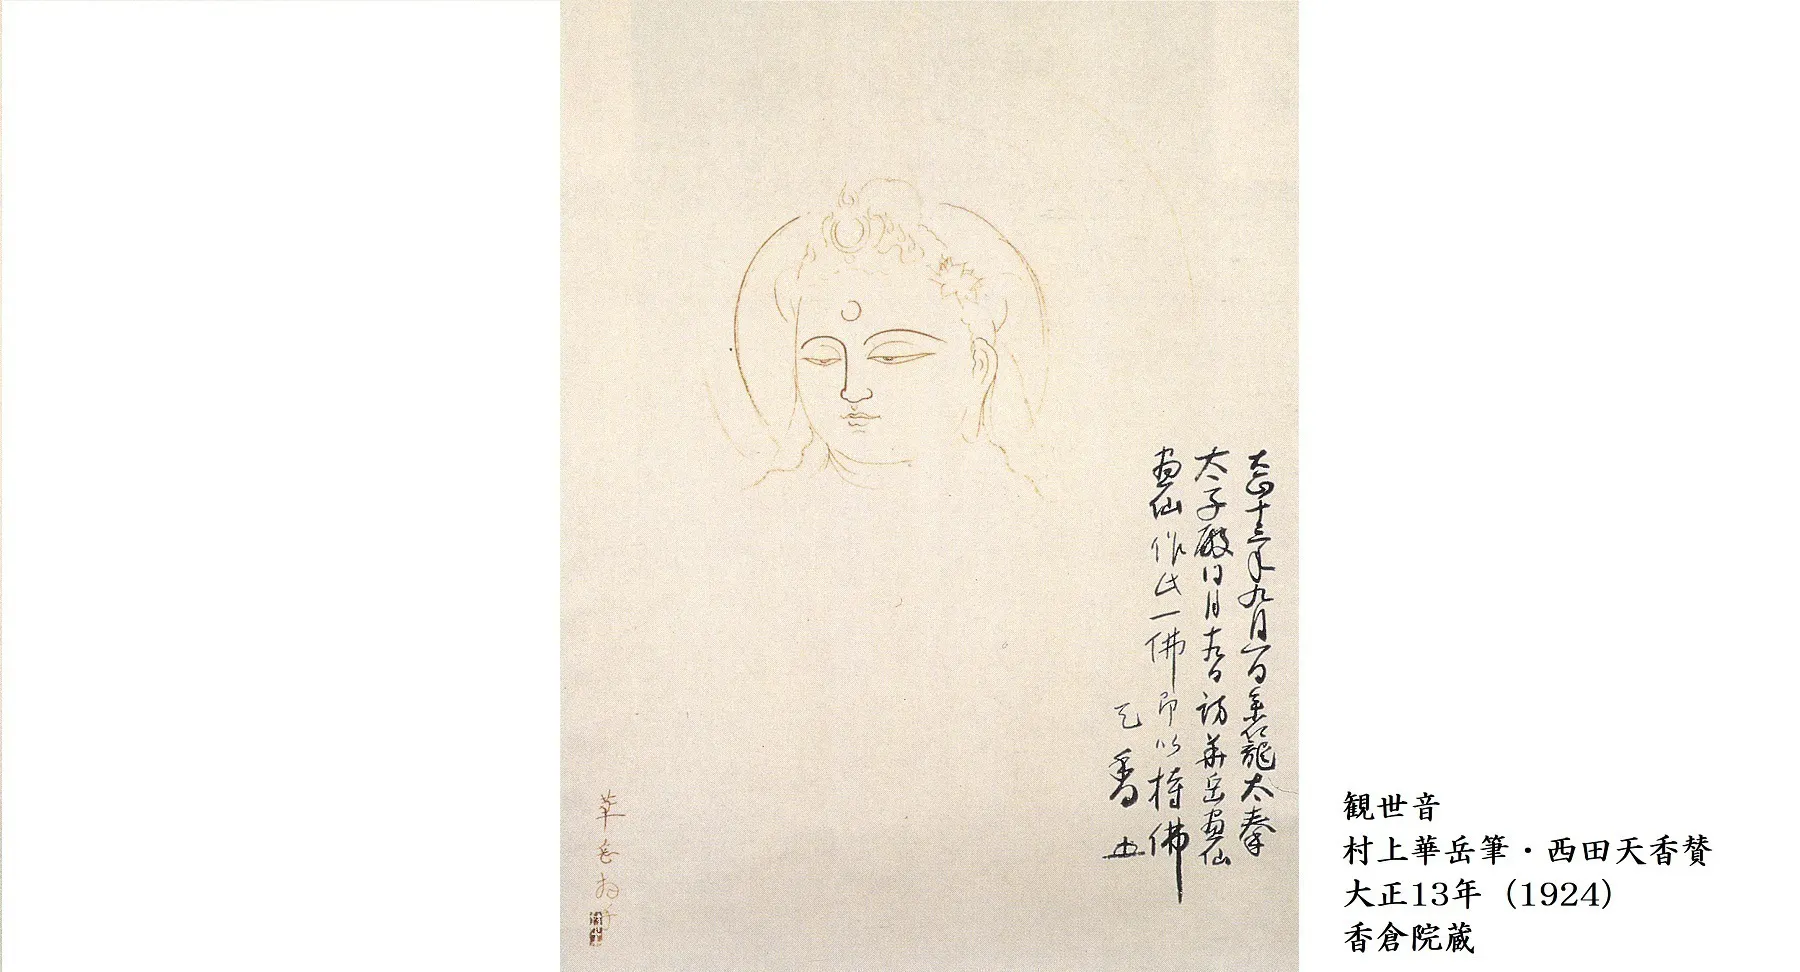 大正十三年九月一日参籠太秦
太子殿同月十九日訪華岳畫仙
畫仙作此一佛即以持佛
天香
華岳
観世音
村上華岳筆・西田天香賛
大正13年（1924）
香倉院蔵